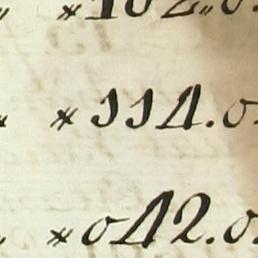 〃 *102〃0
〃 *114.0
〃 *042.0